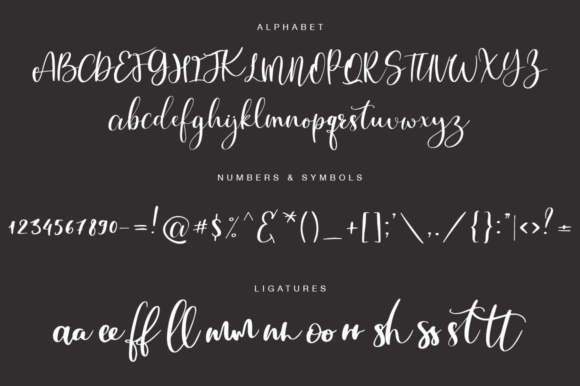 ALPHABET
ABCDEFGHIJKLMNOPQRSTUVWXYZ
abcdefghijklmnopqrstuvwxyz
NUMBERS & SYMBOLS
1234567890-=!@#$%^&*()_+[];'\,./{}:"|<>?±
LIGATURES
aa ee ff ll mm nn oo rr sh ss st tt